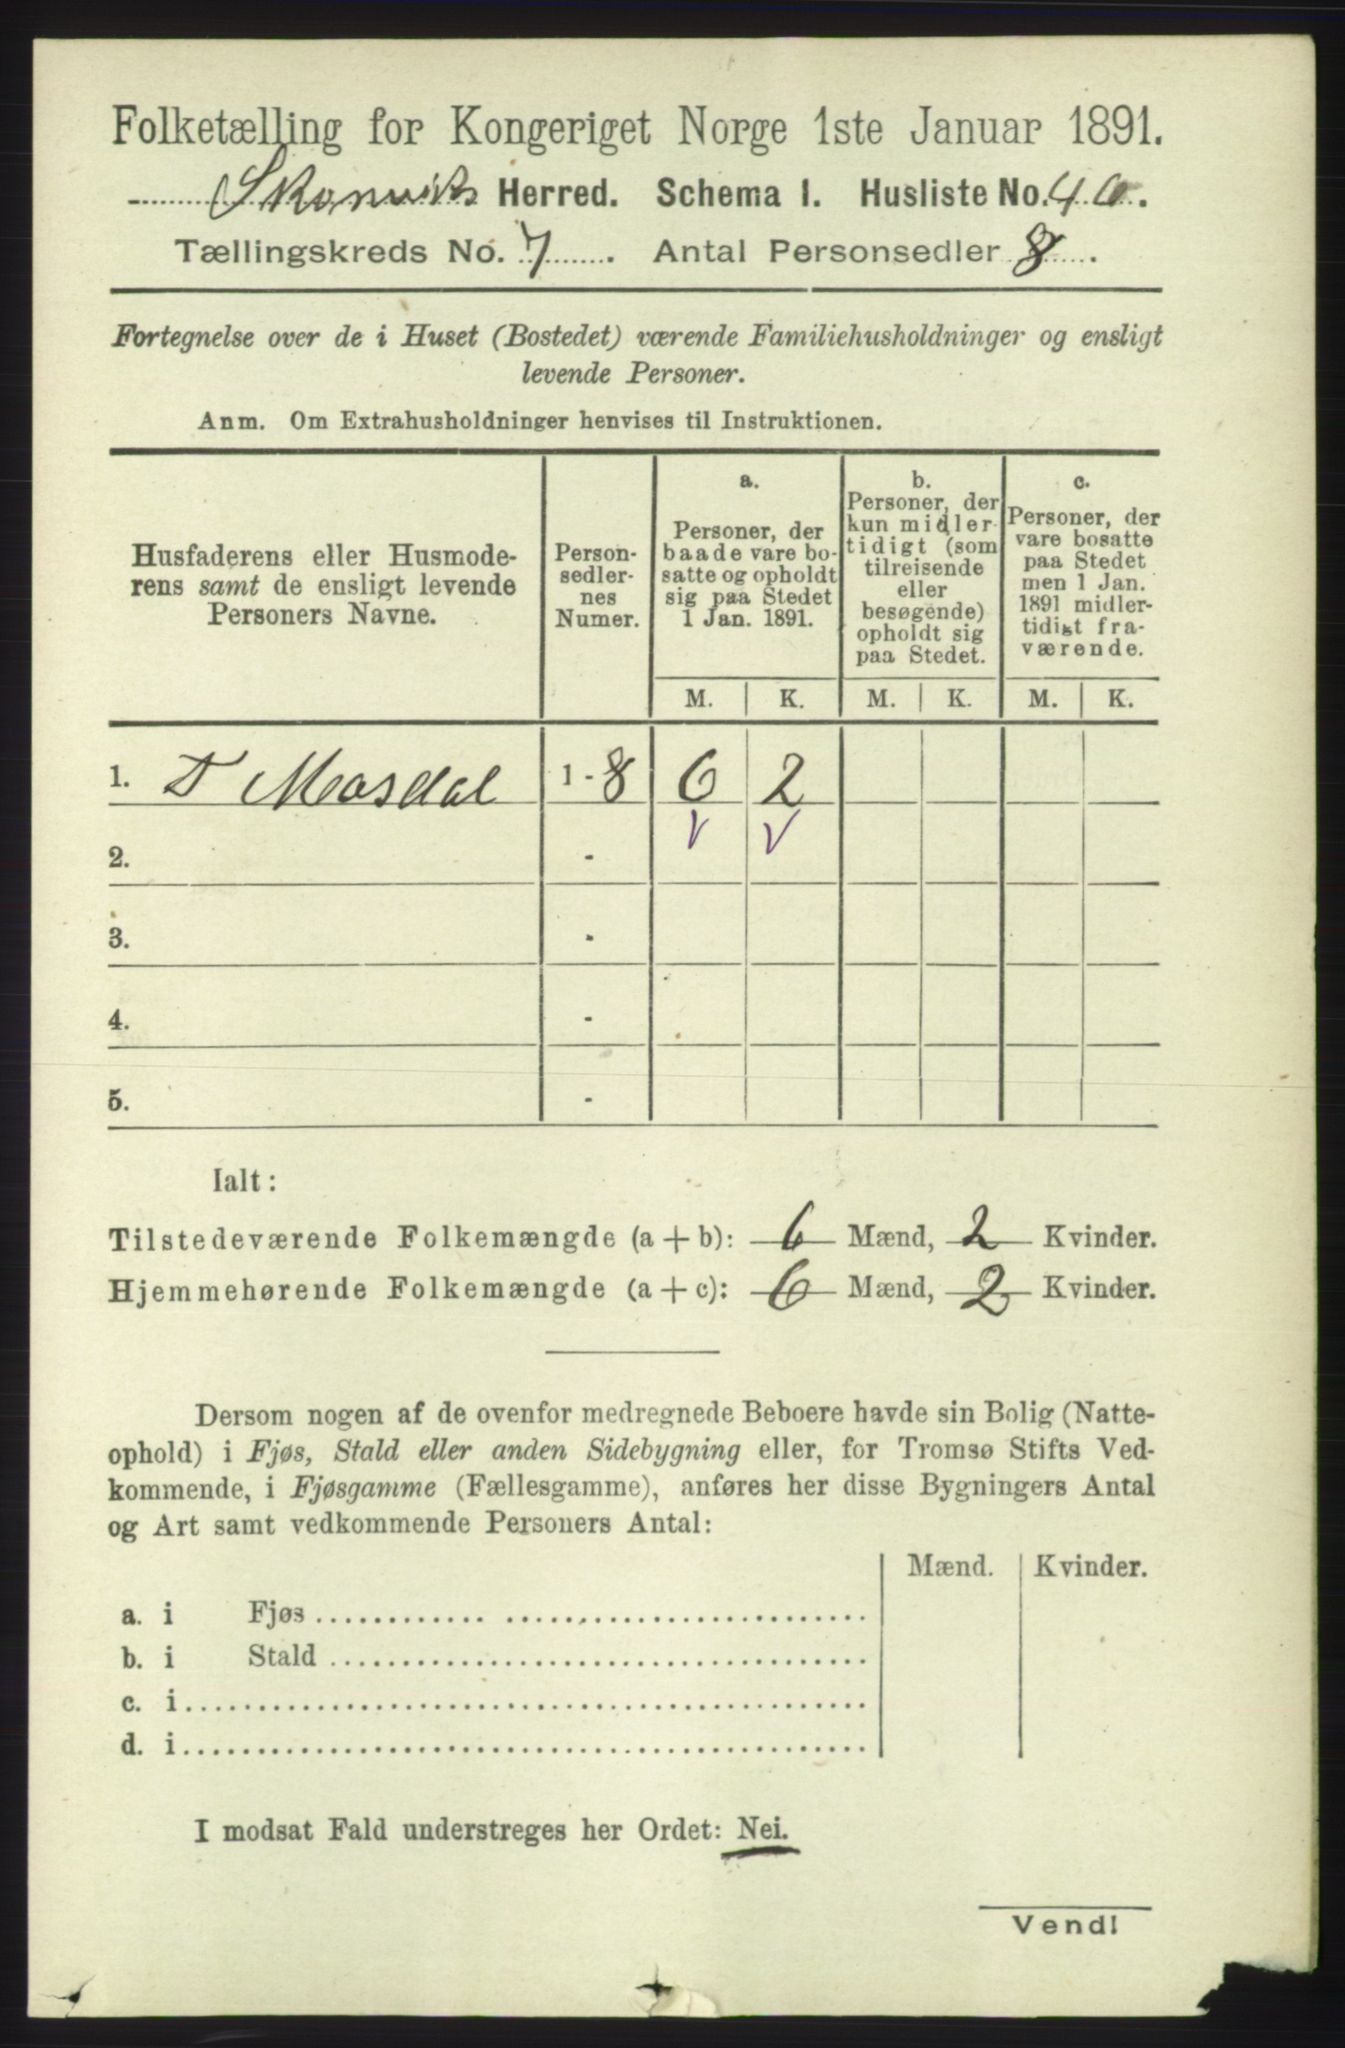 Folketælling for Kongeriget Norge 1ste Januar 1891.
Skonevik Herred. Schema I. Husliste No. 40.
Tællingskreds No. 7. Antal Personsedler 8.
Fortegnelse over de i Huset (Bostedet) værende Familiehusholdninger og ensligt
levende Personer.
Anm. Om Extrahusholdninger henvises til Instruktionen.
Husfaderens eller Husmode-
rens samt de ensligt levende
Personers Navne.
Person-
sedler-
nes
Numer.
a.
Personer, der
baade vare bo-
satte og opholdt
sig paa Stedet
1 Jan. 1891.
b.
Personer, der
kun midler-
tidigt (som
tilreisende
eller
besøgende)
opholdt sig
paa Stedet.
c.
Personer, der
vare bosatte
paa Stedet
men 1 Jan.
1891 midler-
tidigt fra-
værende.
M. K. M. K. M. K.
1. T Mosdal 1 - 8 6 2
2. -
3. -
4. -
5. -
Ialt:
Tilstedeværende Folkemængde (a + b): 6 Mænd, 2 Kvinder.
Hjemmehørende Folkemængde (a + c): 6 Mænd, 2 Kvinder.
Dersom nogen af de ovenfor medregnede Beboere havde sin Bolig (Natte-
ophold) i Fjøs, Stald eller anden Sidebygning eller, for Tromsø Stifts Ved-
kommende, i Fjøsgamme (Fællesgamme), anføres her disse Bygningers Antal
og Art samt vedkommende Personers Antal:
Mænd. Kvinder.
a. i Fjøs
b. i Stald
c. i
d. i
I modsat Fald understreges her Ordet: Nei.
Vend!